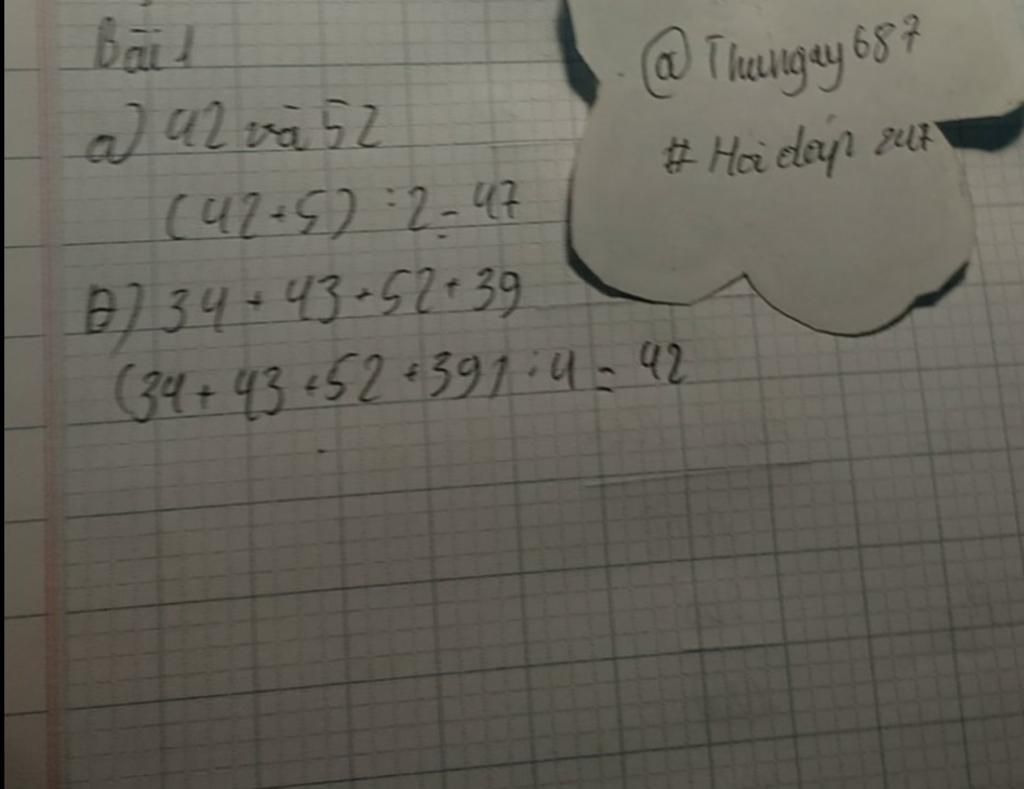 Bài 1
a) 42 và 52
(42+5) :2 = 47
B) 34 + 43 + 52 + 39
(34 + 43 + 52 + 39) : 4 = 42
@ Thungay687
# Hoidap 247